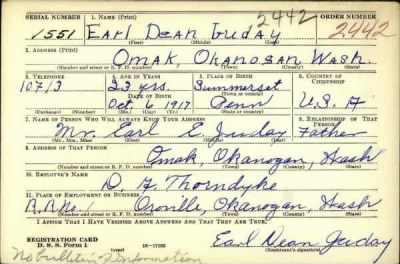 SERIAL NUMBER 1. NAME (Print) 2442 ORDER NUMBER
1551 Earl Dean Juday 2442
(First) (Middle) (Last)
2. ADDRESS (Print)
Omak, Okanogan Wash.
(Number and street or R. F. D. number) (Town) (County) (State)
3. TELEPHONE 4. AGE IN YEARS 5. PLACE OF BIRTH 6. COUNTRY OF CITIZENSHIP
10713 23 yrs. Summerset
DATE OF BIRTH
Oct. 6, 1917 Penn U.S.A
(Exchange) (Number) (Mo.) (Day) (Yr.) (State or country)
7. NAME OF PERSON WHO WILL ALWAYS KNOW YOUR ADDRESS 8. RELATIONSHIP OF THAT PERSON
Mr. Earl E. Juday Father
(Mr., Mrs., Miss) (First) (Middle) (Last)
9. ADDRESS OF THAT PERSON
Omak, Okanogan, Wash
(Number and street or R. F. D. number) (Town) (County) (State)
10. EMPLOYER'S NAME
D. H. Thorndyke
11. PLACE OF EMPLOYMENT OR BUSINESS
R.R. No. 1 Oroville, Okanogan, Wash
(Number and street or R. F. D. number) (Town) (County) (State)
I AFFIRM THAT I HAVE VERIFIED ABOVE ANSWERS AND THAT THEY ARE TRUE.
REGISTRATION CARD
D. S. S. Form 1 16—17105 Earl Dean Juday
(Registrant's signature)
No bulletin of Information